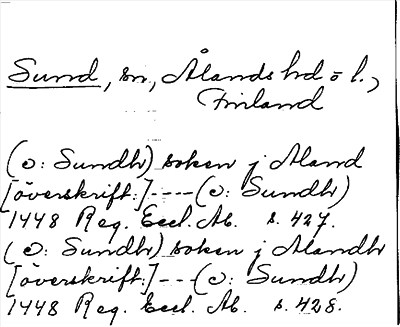 Sund, sn, Ålands hd o l.,
Finland
(ɔ: Sundh) soken j Aland
[överskrift:]---- (ɔ: Sundh)
1448 Reg. Eccl. Ab. s. 427.
(ɔ: Sundh) soken j Alandh
[överskrift:]-- (ɔ: Sundh)
1448 Reg. Eccl. Ab. s. 428.